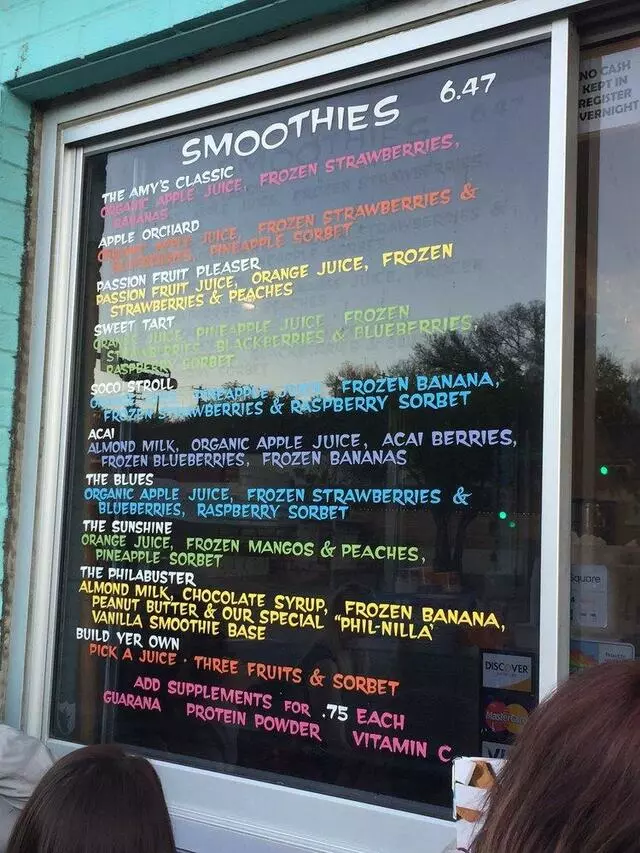 SMOOTHIES 6.47
THE AMY'S CLASSIC
ORGANIC APPLE JUICE, FROZEN STRAWBERRIES,
BANANAS
APPLE ORCHARD
ORGANIC APPLE JUICE, FROZEN STRAWBERRIES &
BLUEBERRIES, PINEAPPLE SORBET
PASSION FRUIT PLEASER
PASSION FRUIT JUICE, ORANGE JUICE, FROZEN
STRAWBERRIES & PEACHES
SWEET TART
ORANGE JUICE, PINEAPPLE JUICE, FROZEN
STRAWBERRIES, BLACKBERRIES & BLUEBERRIES,
RASPBERRY SORBET
SOCO STROLL
PINEAPPLE JUICE, FROZEN BANANA,
FROZEN STRAWBERRIES & RASPBERRY SORBET
ACAI
ALMOND MILK, ORGANIC APPLE JUICE, ACAI BERRIES,
FROZEN BLUEBERRIES, FROZEN BANANAS
THE BLUES
ORGANIC APPLE JUICE, FROZEN STRAWBERRIES &
BLUEBERRIES, RASPBERRY SORBET
THE SUNSHINE
ORANGE JUICE, FROZEN MANGOS & PEACHES,
PINEAPPLE SORBET
THE PHILABUSTER
ALMOND MILK, CHOCOLATE SYRUP, FROZEN BANANA,
PEANUT BUTTER & OUR SPECIAL "PHIL-NILLA"
VANILLA SMOOTHIE BASE
BUILD YER OWN
PICK A JUICE · THREE FRUITS & SORBET
ADD SUPPLEMENTS FOR .75 EACH
GUARANA PROTEIN POWDER VITAMIN C
NO CASH
KEPT IN
REGISTER
VERNIGHT
Square
DISCOVER
MasterCard
VI